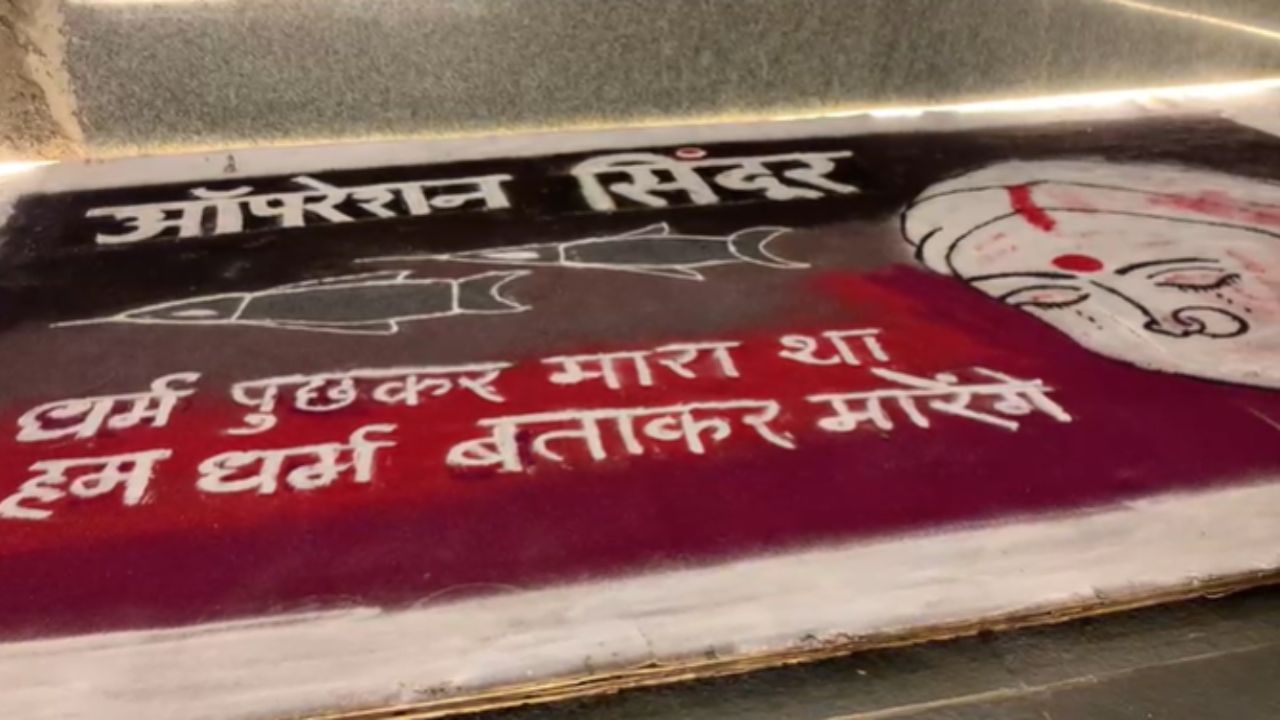 ऑपरेशन सिंदूर
धर्म पुछकर मारा था
हम धर्म बताकर मारेंगे